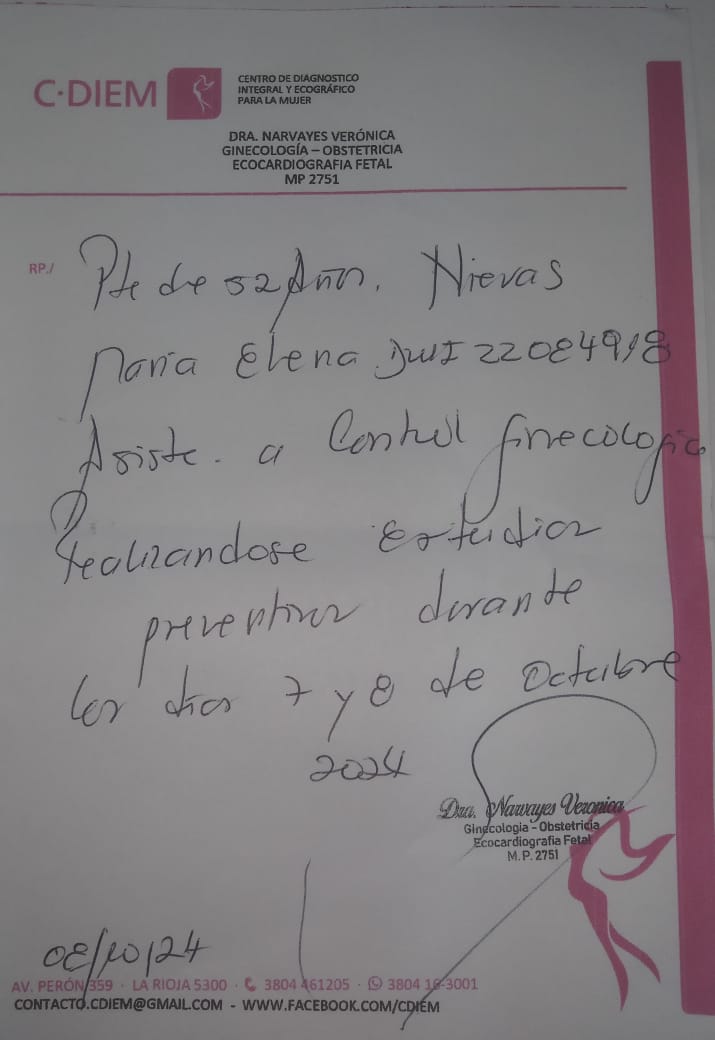 C·DIEM
CENTRO DE DIAGNOSTICO
INTEGRAL Y ECOGRÁFICO
PARA LA MUJER
DRA. NARVAYES VERÓNICA
GINECOLOGÍA – OBSTETRICIA
ECOCARDIOGRAFIA FETAL
MP 2751
RP./
Pte de 52 Años. Nievas
María Elena DNI 22084918
Asiste. a Control ginecologico
realizandose estudios
preventivos durante
los días 7 y 8 de Octubre
2024
Dra. Narvayes Veronica
Ginecologia - Obstetricia
Ecocardiografia Fetal
M.P. 2751
08/10/24
AV. PERÓN 359 · LA RIOJA 5300 · 3804 461205 · 3804 16-3001
CONTACTO.CDIEM@GMAIL.COM - WWW.FACEBOOK.COM/CDIEM